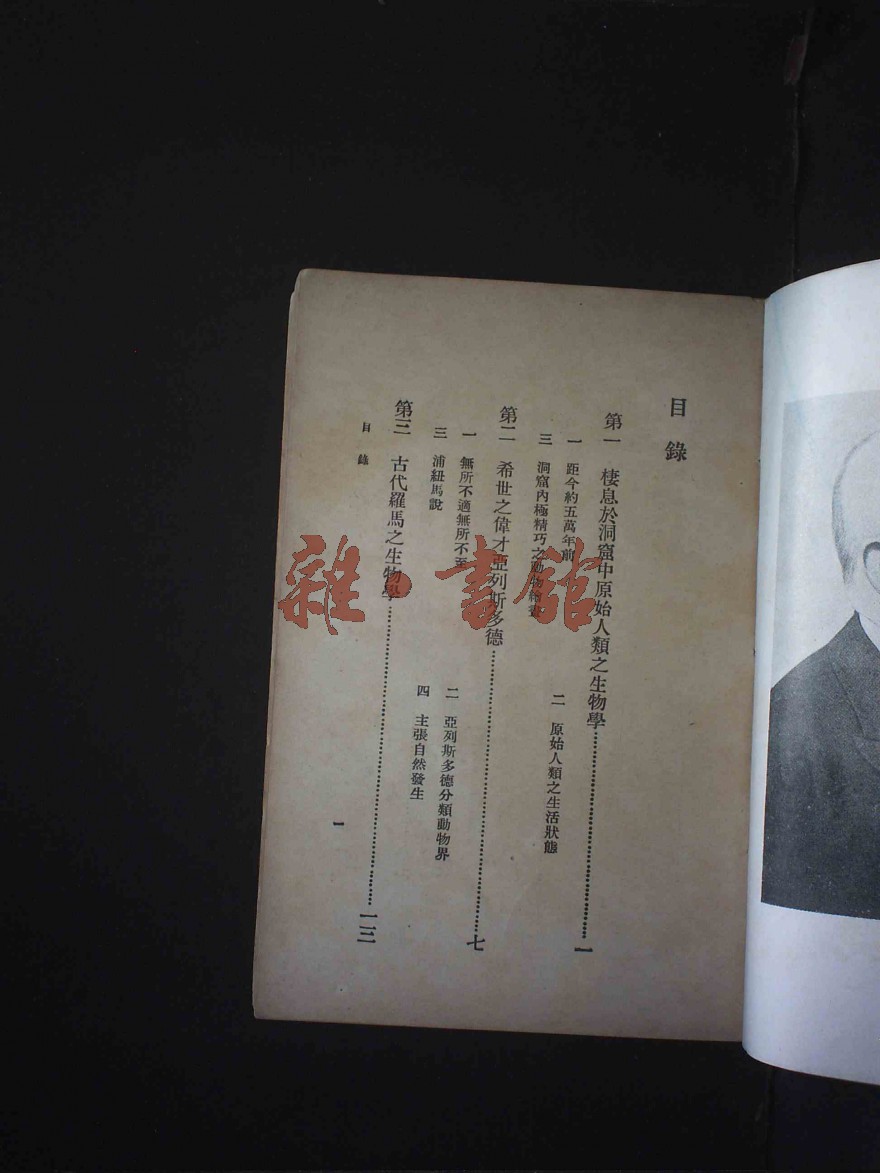 目錄
第一 棲息於洞窟中原始人類之生物學……一
一 距今約五萬年前 二 原始人類之生活狀態
三 洞窟內極精巧之動物繪畫
第二 希世之偉才亞列斯多德……七
一 無所不適無所不至 二 亞列斯多德分類動物界
三 浦紐馬說 四 主張自然發生
第三 古代羅馬之生物學……一三
目錄
一
雜·書館